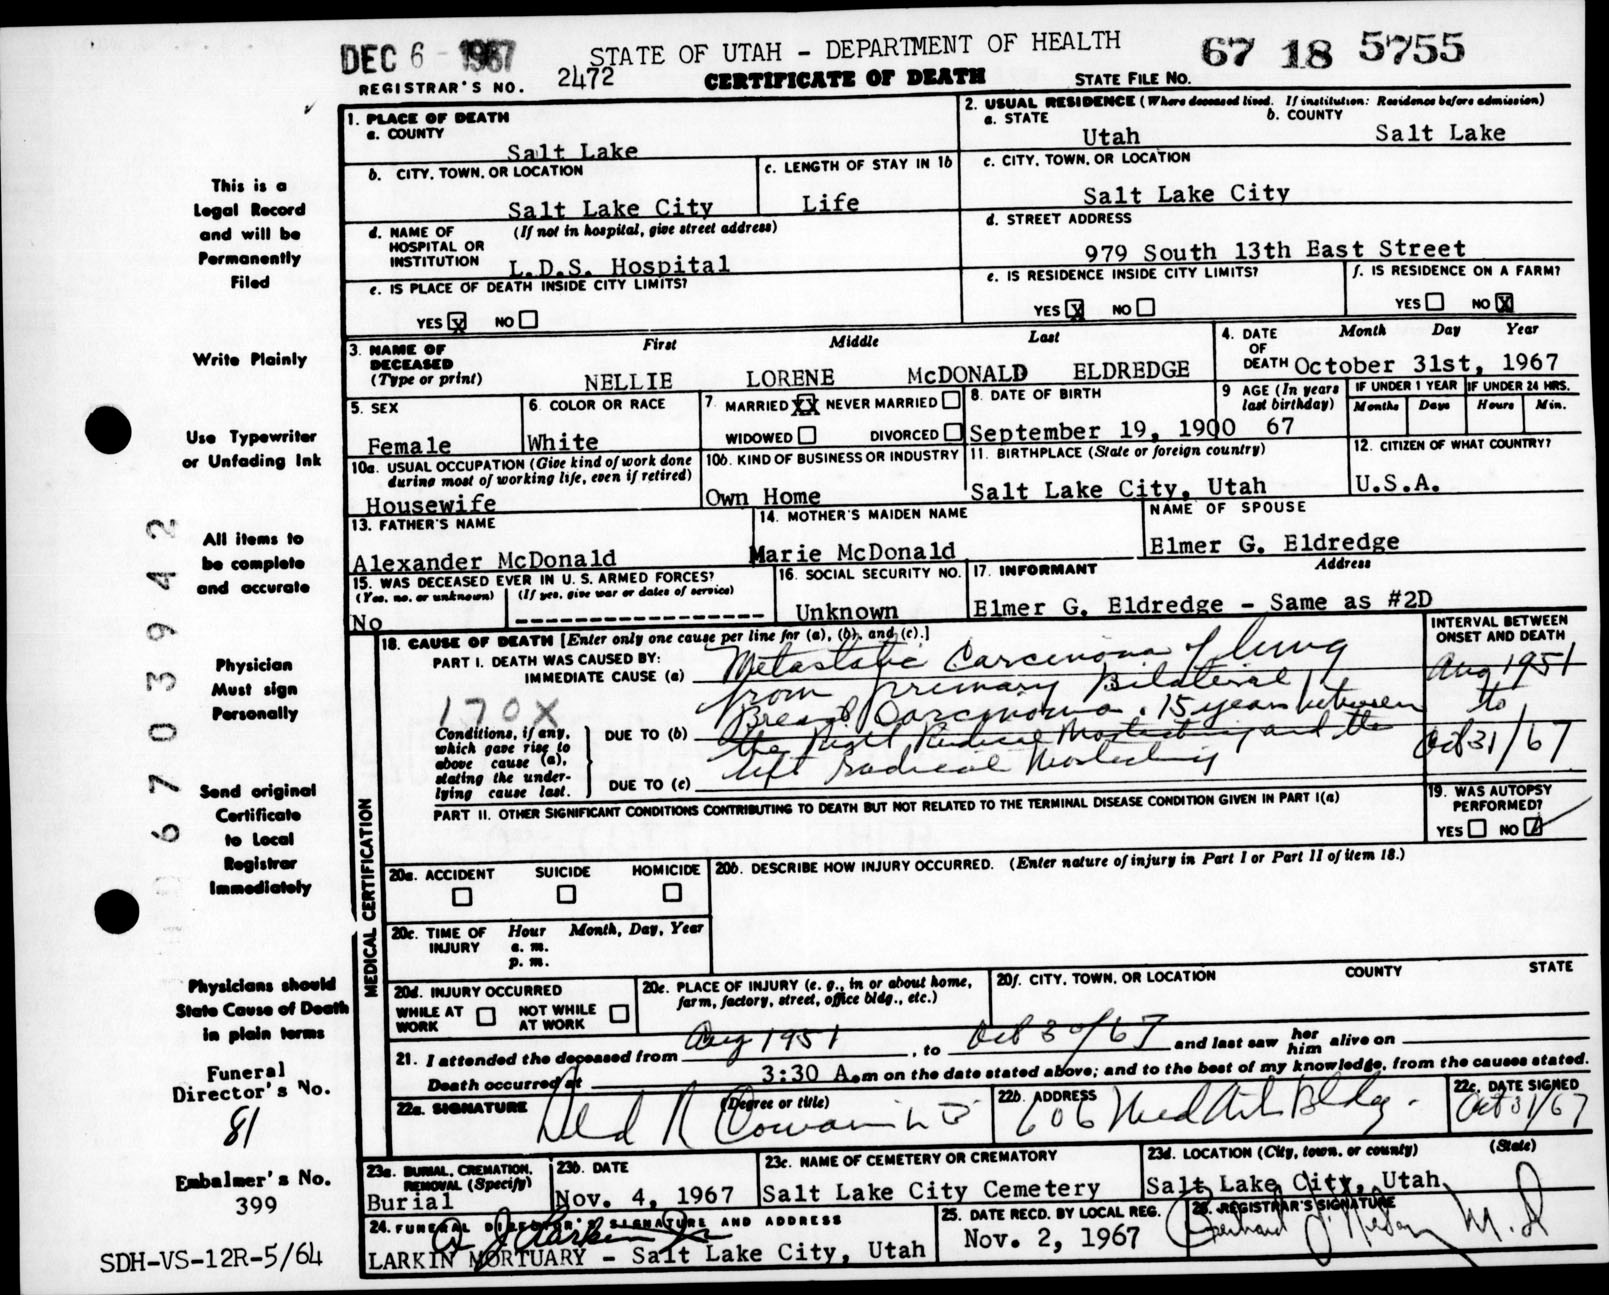 DEC 6 - 1967
STATE OF UTAH - DEPARTMENT OF HEALTH
67 18 5755
REGISTRAR'S NO. 2472
CERTIFICATE OF DEATH
STATE FILE NO.
This is a
Legal Record
and will be
Permanently
Filed
Write Plainly
Use Typewriter
or Unfading Ink
All items to
be complete
and accurate
Physician
Must sign
Personally
Send original
Certificate
to Local
Registrar
Immediately
Physicians should
State Cause of Death
in plain terms
Funeral
Director's No.
81
Embalmer's No.
399
SDH-VS-12R-5/64
6703942
1. PLACE OF DEATH
a. COUNTY
Salt Lake
2. USUAL RESIDENCE (Where deceased lived. If institution: Residence before admission)
a. STATE
Utah
b. COUNTY
Salt Lake
b. CITY, TOWN, OR LOCATION
Salt Lake City
c. LENGTH OF STAY IN 1b
Life
c. CITY, TOWN, OR LOCATION
Salt Lake City
d. NAME OF HOSPITAL OR INSTITUTION
(If not in hospital, give street address)
L.D.S. Hospital
d. STREET ADDRESS
979 South 13th East Street
e. IS PLACE OF DEATH INSIDE CITY LIMITS?
YES X NO
e. IS RESIDENCE INSIDE CITY LIMITS?
YES X NO
f. IS RESIDENCE ON A FARM?
YES NO X
3. NAME OF DECEASED (Type or print)
First Middle Last
NELLIE LORENE McDONALD ELDREDGE
4. DATE OF DEATH
Month Day Year
October 31st, 1967
5. SEX
Female
6. COLOR OR RACE
White
7. MARRIED XX NEVER MARRIED
WIDOWED DIVORCED
8. DATE OF BIRTH
September 19, 1900
9 AGE (In years last birthday)
67
IF UNDER 1 YEAR
Months Days
IF UNDER 24 HRS.
Hours Min.
10a. USUAL OCCUPATION (Give kind of work done during most of working life, even if retired)
Housewife
10b. KIND OF BUSINESS OR INDUSTRY
Own Home
11. BIRTHPLACE (State or foreign country)
Salt Lake City, Utah
12. CITIZEN OF WHAT COUNTRY?
U.S.A.
13. FATHER'S NAME
Alexander McDonald
14. MOTHER'S MAIDEN NAME
Marie McDonald
NAME OF SPOUSE
Elmer G. Eldredge
15. WAS DECEASED EVER IN U. S. ARMED FORCES?
(Yes, no, or unknown) (If yes, give war or dates of service)
No
16. SOCIAL SECURITY NO.
Unknown
17. INFORMANT
Address
Elmer G. Eldredge - Same as #2D
MEDICAL CERTIFICATION
18. CAUSE OF DEATH [Enter only one cause per line for (a), (b), and (c).]
PART I. DEATH WAS CAUSED BY:
IMMEDIATE CAUSE (a)
Metastatic Carcinoma of lung
from primary Bilateral
170X
Conditions, if any, which gave rise to above cause (a), stating the underlying cause last.
DUE TO (b)
Breast Carcinoma. 15 years between
the Right Radical Mastectomy and the
DUE TO (c)
left Radical Mastectomy
INTERVAL BETWEEN ONSET AND DEATH
Aug 1951
to
Oct 31/67
PART II. OTHER SIGNIFICANT CONDITIONS CONTRIBUTING TO DEATH BUT NOT RELATED TO THE TERMINAL DISEASE CONDITION GIVEN IN PART I(a)
19. WAS AUTOPSY PERFORMED?
YES NO
20a. ACCIDENT SUICIDE HOMICIDE
20b. DESCRIBE HOW INJURY OCCURRED. (Enter nature of injury in Part I or Part II of item 18.)
20c. TIME OF INJURY
Hour Month, Day, Year
a. m.
p. m.
20d. INJURY OCCURRED
WHILE AT WORK NOT WHILE AT WORK
20e. PLACE OF INJURY (e. g., in or about home, farm, factory, street, office bldg., etc.)
20f. CITY, TOWN, OR LOCATION COUNTY STATE
21. I attended the deceased from Aug 1951, to Oct 30/67 and last saw her him alive on
Death occurred at 3:30 A.m on the date stated above; and to the best of my knowledge, from the causes stated.
22a. SIGNATURE
(Degree or title)
22b. ADDRESS
606 Med Arts Bldg.
22c. DATE SIGNED
Oct 31/67
23a. BURIAL, CREMATION, REMOVAL (Specify)
Burial
23b. DATE
Nov. 4, 1967
23c. NAME OF CEMETERY OR CREMATORY
Salt Lake City Cemetery
23d. LOCATION (City, town, or county) (State)
Salt Lake City, Utah
24. FUNERAL DIRECTOR'S SIGNATURE AND ADDRESS
LARKIN MORTUARY - Salt Lake City, Utah
25. DATE RECD. BY LOCAL REG.
Nov. 2, 1967
26. REGISTRAR'S SIGNATURE